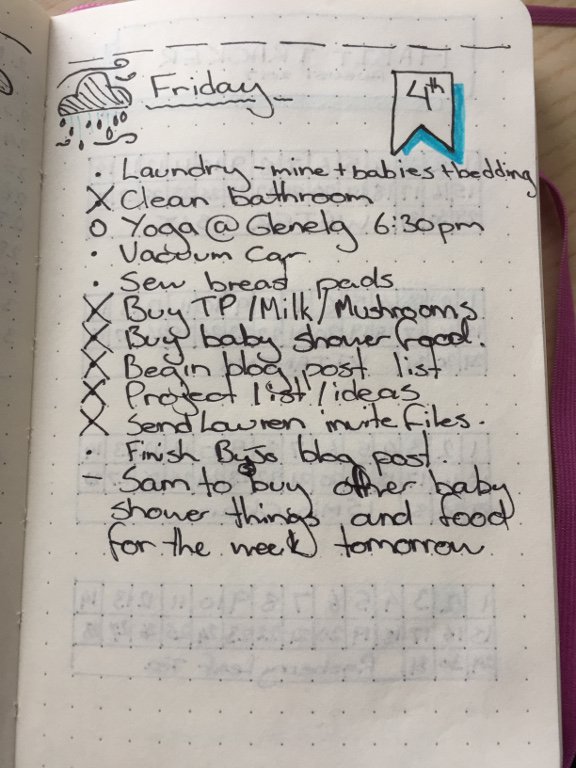 Friday
4th
• Laundry - mine + babies + bedding
X Clean bathroom
O Yoga @ Glenelg 6:30pm
• Vacuum Car
• Sew breast pads
X Buy TP / Milk / Mushrooms
X Buy baby shower food.
X Begin blog post list
X Project list / ideas
X Send Lauren invite files.
• Finish BuJo blog post.
- Sam to buy other baby
shower things and food
for the week tomorrow